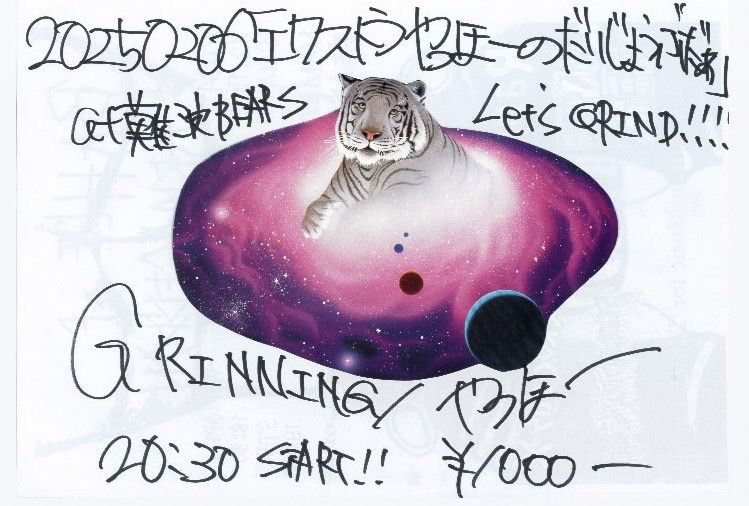 20250206「エクストやっほーのだいじょうぶだぁ」
at 難波BEARS Let's GRIND!!!!
GRINNING/やっほー
20:30 START!! ¥1000ー